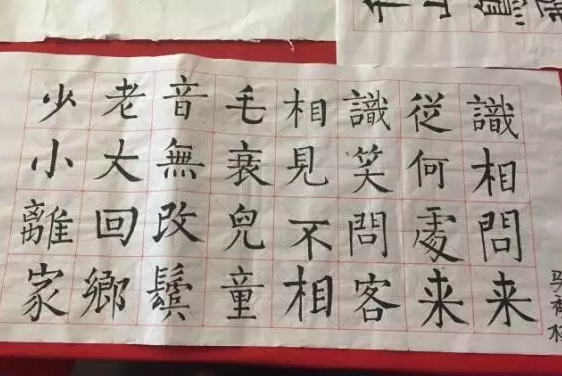 少小離家
老大回鄉
音無改鬢
毛衰兒童
相見不相
識笑問客
從何處来
識相問来
马